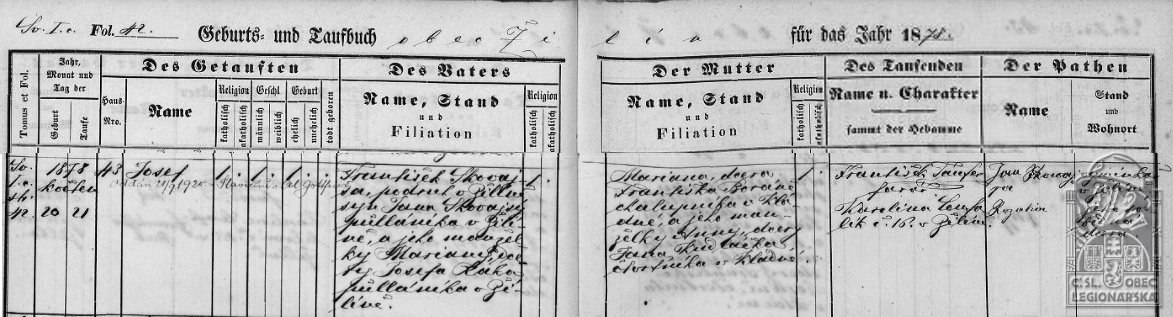 Sv. I. c. Fol. 42. Geburts- und Taufbuch obec Ži
lina für das Jahr 1878.
Tomus et Fol.
Jahr, Monat und Tag der
Geburt
Taufe
Haus-Nro.
Des Getauften
Name
Religion
katholisch
akatholisch
Geschl.
männlich
weiblich
Geburt
ehelich
unehelich
todt geboren
Des Vaters
Name, Stand
und
Filiation
Religion
katholisch
akatholisch
Der Mutter
Name, Stand
und
Filiation
Religion
katholisch
akatholisch
Des Taufenden
Name u. Charakter
sammt der Hebamme
Der Pathen
Name
Stand
und
Wohnort
Sv.
I. c.
str.
42.
1878
května
20 21
43
Josef
1. 1. 1.
František Skovaj
sa, podruh v Žilině
syn Jana Skovajsy
pullánika v Žili
ně, a jeho manžel
ky Mariany, dce
ry Josefa
pullánika v Ži
lině.
1.
Mariana, dcera
Františka
chalupníka v Kla
dné a jeho man
želky Anny, dcery
Jana Kudláčka
čtvrtníka v Kladné.
1.
František
farář
Karolina
lik č. 16. v Žilině.
Jan Skovaj
sa
Rozalia
v Žilině
dcera
ČSL. OBEC
LEGIONÁŘSKÁ